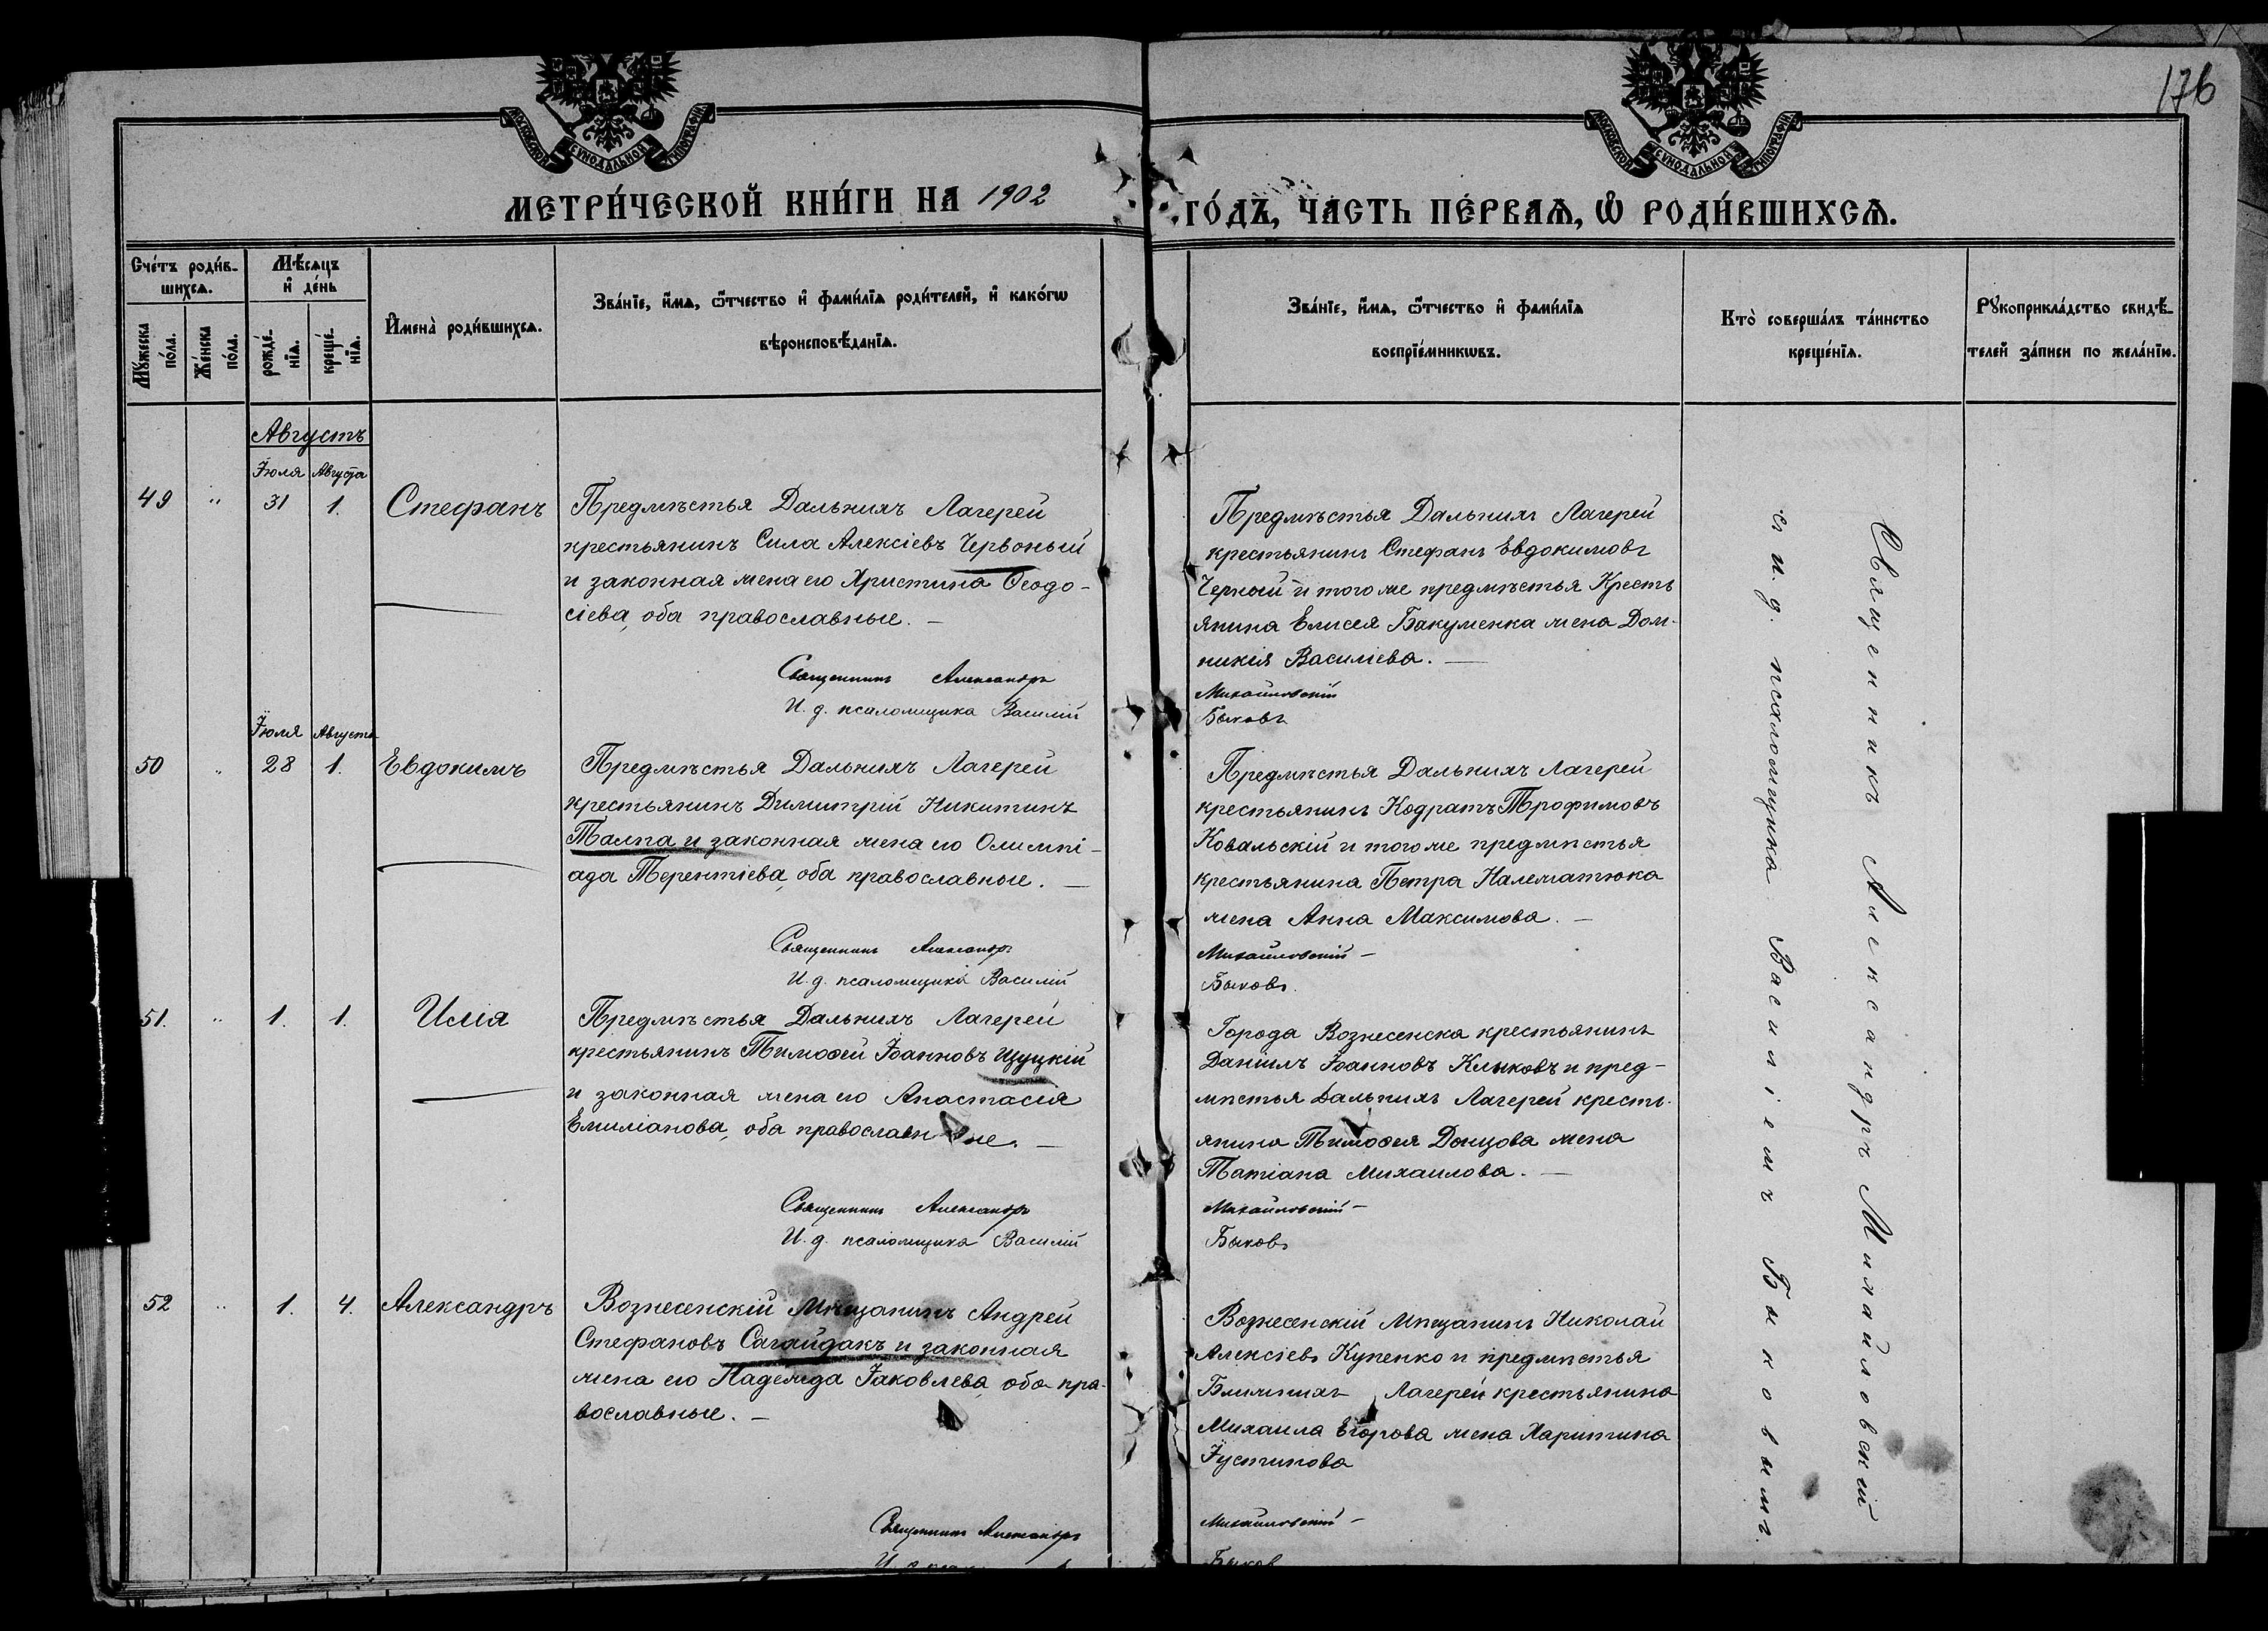 176
МОСКОВСКОЙ СУНОДАЛЬНОЙ ТИПОГРАФІИ
МОСКОВСКОЙ СУНОДАЛЬНОЙ ТИПОГРАФІИ
МЕТРИ́ЧЕСКОЙ КНИ́ГИ НА 1902
ГО́ДЪ, ЧАСТЬ ПЕ́РВАѦ, Ѡ РОДИ́ВШИХСѦ.
Сче́тъ роди́в-
шихсѧ.
Мꙋ́жеска
по́ла.
Же́нска
по́ла.
Мѣ́сѧцъ
и҆ де́нь
рожде́-
нїѧ.
креще́-
нїѧ.
И҆мена̀ роди́вшихсѧ.
Зва́нїе, и҆́мѧ, ѻ҆́тчество и҆ фами́лїѧ роди́телей, и҆ како́гѡ
вѣроисповѣ́данїѧ.
Зва́нїе, и҆́мѧ, ѻ҆́тчество и҆ фами́лїѧ
воспрїе́мникѡвъ.
Кто̀ соверша́лъ та́инство
креще́нїѧ.
Рꙋкоприкла́дство свидѣ́-
телей за́писи по жела́нїю.
Августъ
Іюля Августа
49 " 31 1. Стефанъ
Предмѣстья Дальнихъ Лагерей
крестьянинъ Сила Алексіевъ Червоный
и законная жена его Христина Ѳеодо-
сіева, оба православные. —
Священникъ Александръ
И. д. псаломщика Василій
Предмѣстья Дальнихъ Лагерей
крестьянинъ Стефанъ Евдокимовъ
Черный и того же предмѣстья Кресть
янина Елисея Бакуменка жена Дом-
никія Василіева. —
Михайловскій
Быковъ
Іюля Августа
50 " 28 1. Евдокимъ
Предмѣстья Дальнихъ Лагерей
крестьянинъ Димитрій Никитинъ
Талпа и законная жена его Олимпі-
ада Терентіева, оба православные. —
Священникъ Александръ
И. д. псаломщика Василій
Предмѣстья Дальнихъ Лагерей
крестьянинъ Кодратъ Трофимовъ
Ковальскій и того же предмѣстья
крестьянина Петра
жена Анна Максимова. —
Михайловскій —
Быковъ.
51. " 1. 1. Илія
Предмѣстья Дальнихъ Лагерей
крестьянинъ Тимоѳей Іоанновъ Щуцкій
и законная жена его Анастасія
Емиліанова, оба православные. —
Священникъ Александръ
И. д. псаломщика Василій
Города Вознесенска крестьянинъ
Даніилъ Іоанновъ Клыковъ и пред-
мѣстья Дальнихъ Лагерей кресть-
янина Тимоѳея Донцова жена
Татіана Михаилова. —
Михайловскій —
Быковъ
52 " 1. 4. Александръ
Вознесенскій Мѣщанинъ Андрей
Стефановъ Сагайдакъ и законная
жена его Надежда Іаковлева, оба пра-
вославные. —
Священникъ Александръ
Вознесенскій Мѣщанинъ Николай
Алексіевъ Купенко и предмѣстья
Ближнихъ Лагерей крестьянина
Михаила Егорова жена Харитина
Іустинова
Михайловскій —
Быков
Священникъ Александръ Михайловскій
съ и. д. псаломщика Василіемъ Быковымъ.